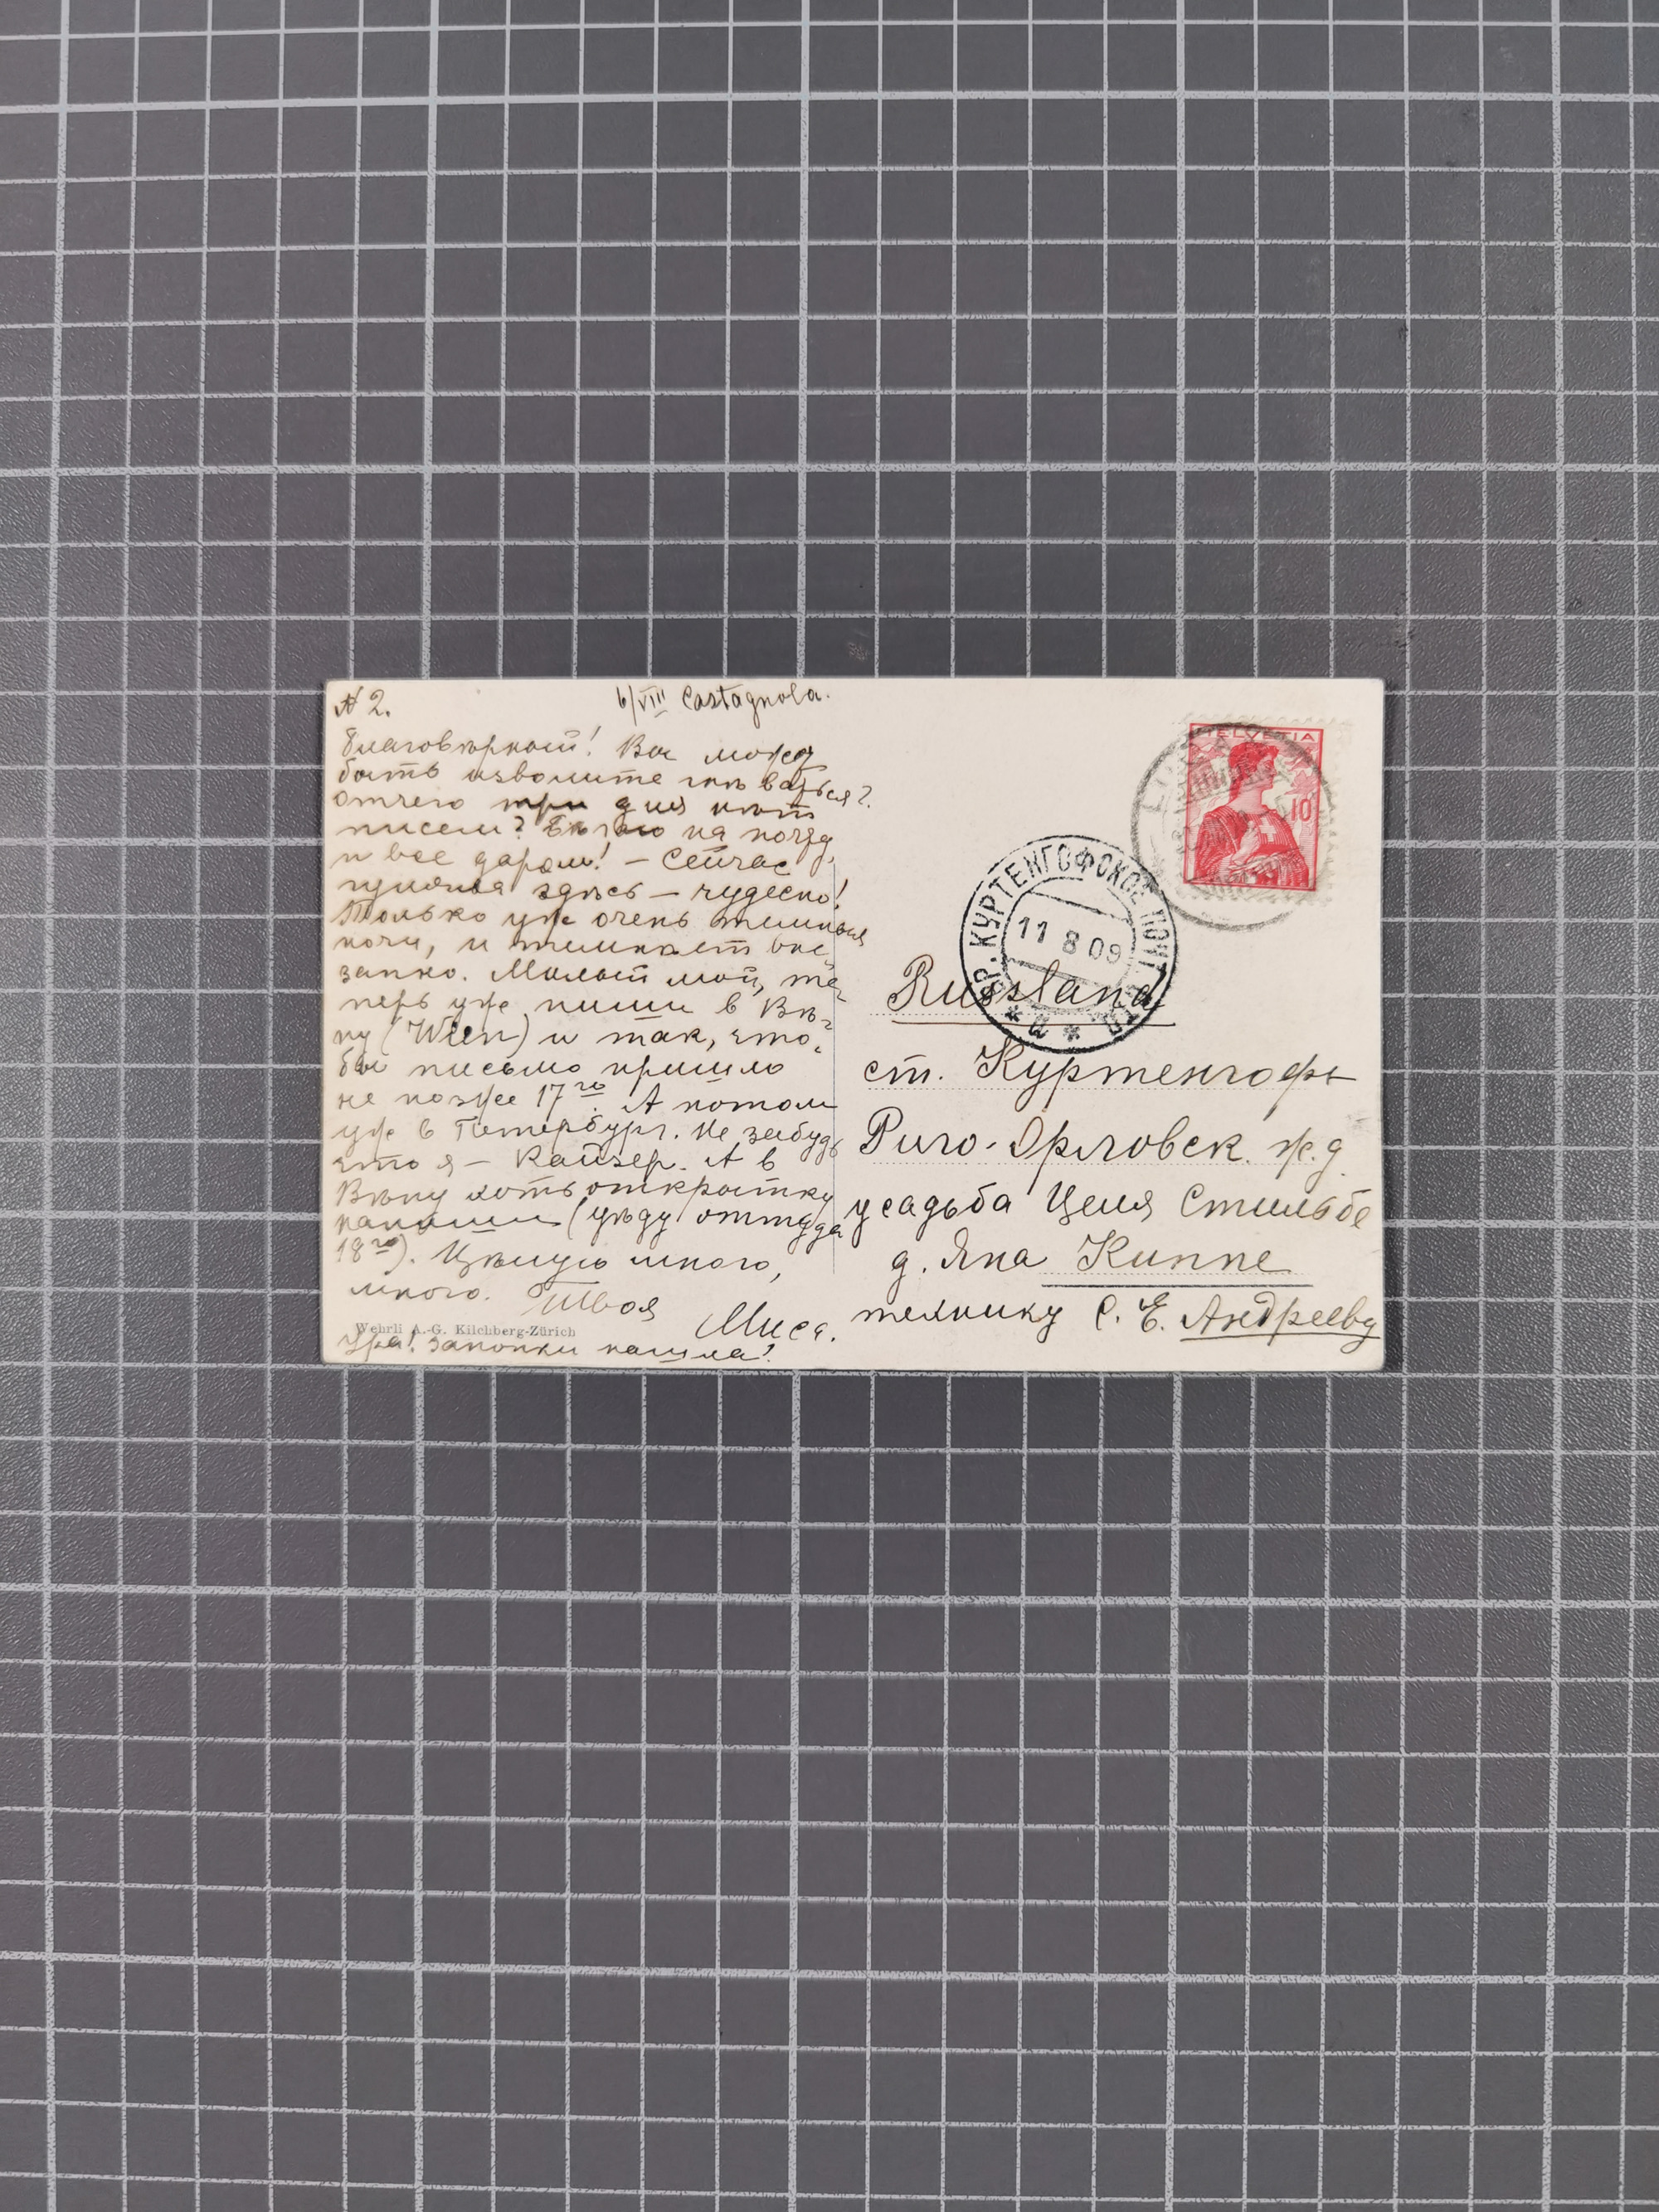 № 2.
6/VIII Castagnola.
Благовѣрный! Вы может
быть изволите гнѣваться?
Отчего три дня нѣт
писем? Бѣгаю на почту
и все даром! — Сейчас
гуляла здѣсь — чудесно!
Только уж очень темныя
ночи, и темнѣет вне-
запно. Милый мой, те-
перь уже пиши в Вѣ-
ну (Wien) и так, что-
бы письмо пришло
не позже 17го. А потом
уж в Петербург. Не забудь
что я — Кайзер. А в
Вѣну хоть открытку
напиши (уѣду оттуда
18го). Цѣлую много,
много. Твоя
Муся.
Ура! Запонки нашла!
Wehrli A.-G. Kilchberg-Zürich
HELVETIA
10
КУРТЕНГОФСКОЕ ПОЧТ.
11 8 09
Russland
ст. Куртенгофъ
Риго-Орловск. ж.д.
усадьба Целя Стильбе
д. Яна Киппе
технику С. Е. Андрееву